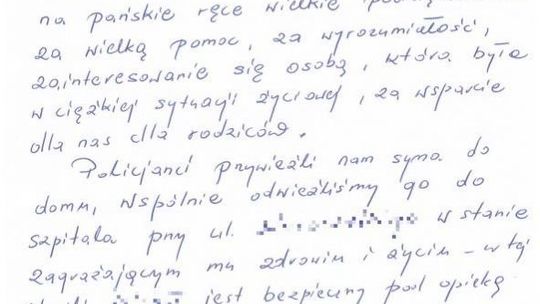 na pańskie ręce wielkie
za wielką pomoc, za wyrozumiałość,
zainteresowanie się osobą, która była
w ciężkiej sytuacji życiowej, za wsparcie
dla nas dla rodziców.
Policjanci przywieźli nam syna do
domu, wspólnie odwieźliśmy go do
szpitala przy ul. w stanie
zagrażającym mu zdrowiu i życiu – w tej
jest bezpieczny pod opieką